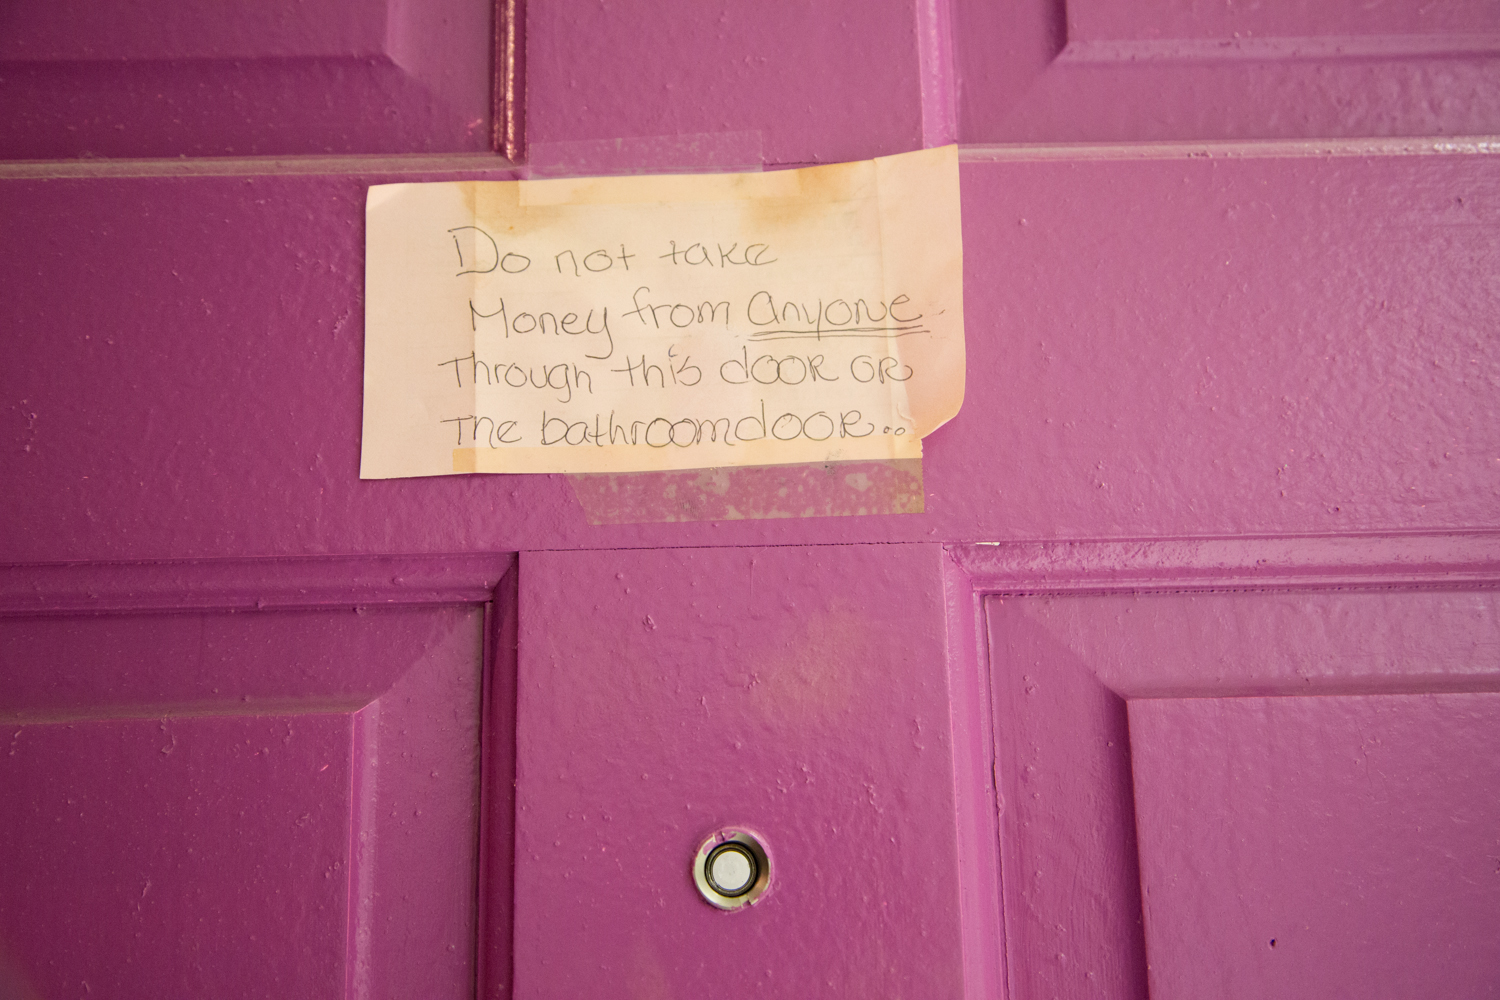 Do not take
Money from anyone
Through this door or
The bathroomdoor..